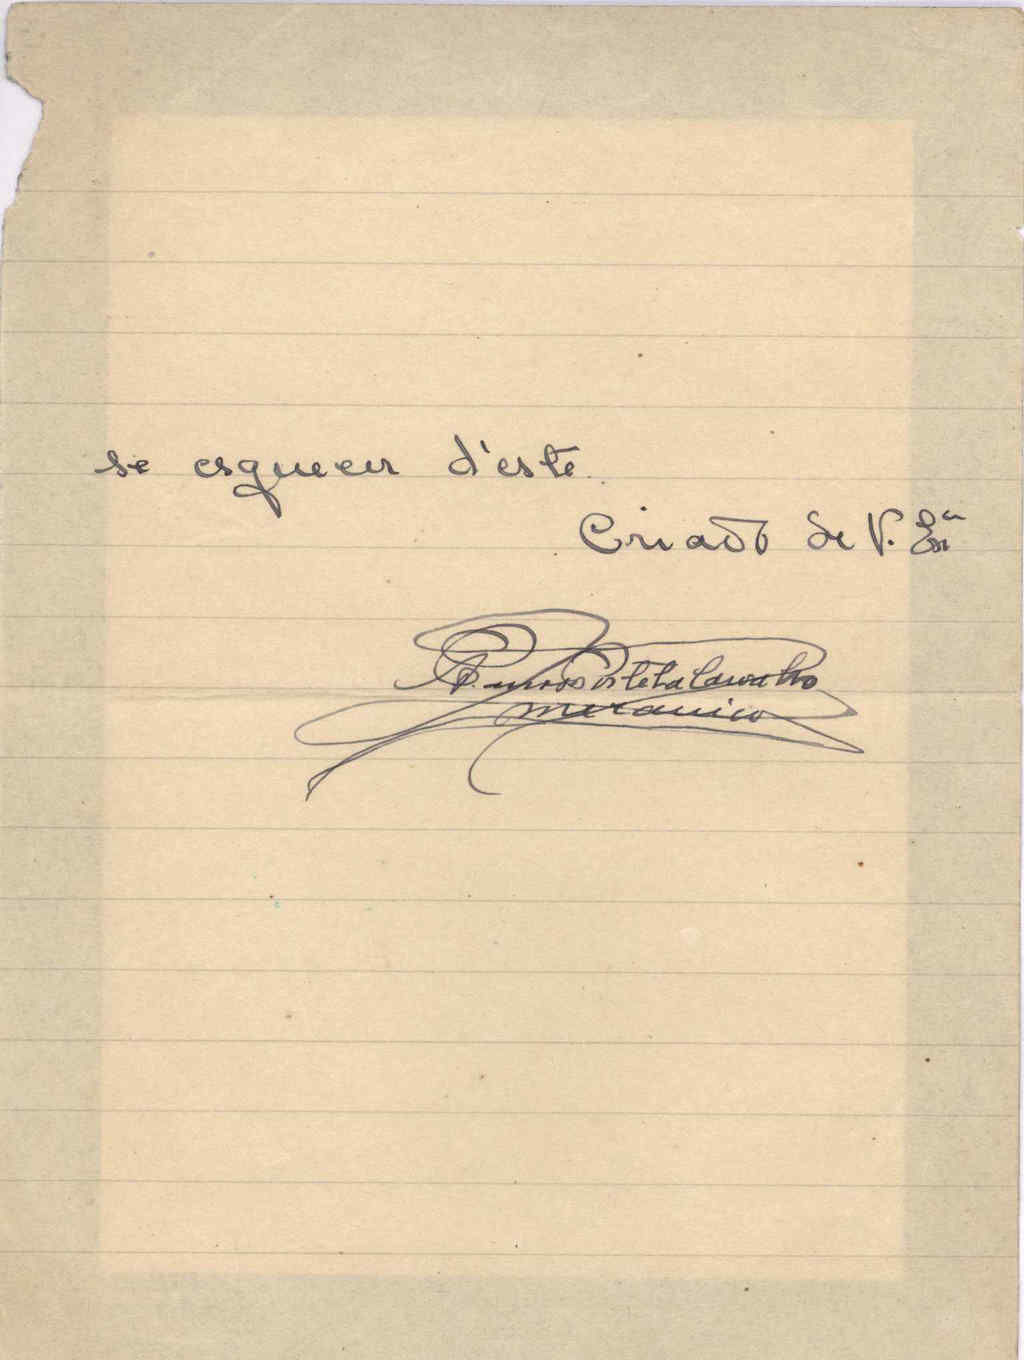 se esquecer d'este
Criado de V. Exª
Portela Carvalho
mecanico